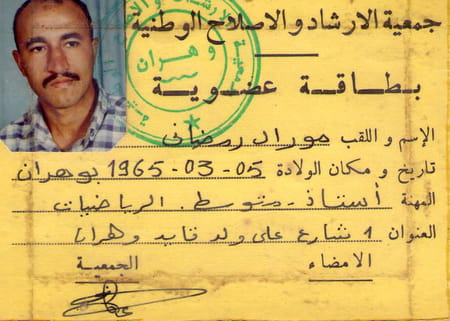 جمعية الارشاد و الاصلاح الوطنية
وهران
بطاقة عضوية
الإسم و اللقب هواري رمضاني
تاريخ و مكان الولادة 05-03-1965 بوهران
المهنة أستاذ متوسط. الرياضيات
العنوان 1 شارع علي ولد قايد وهران
الامضاء
الجمعية